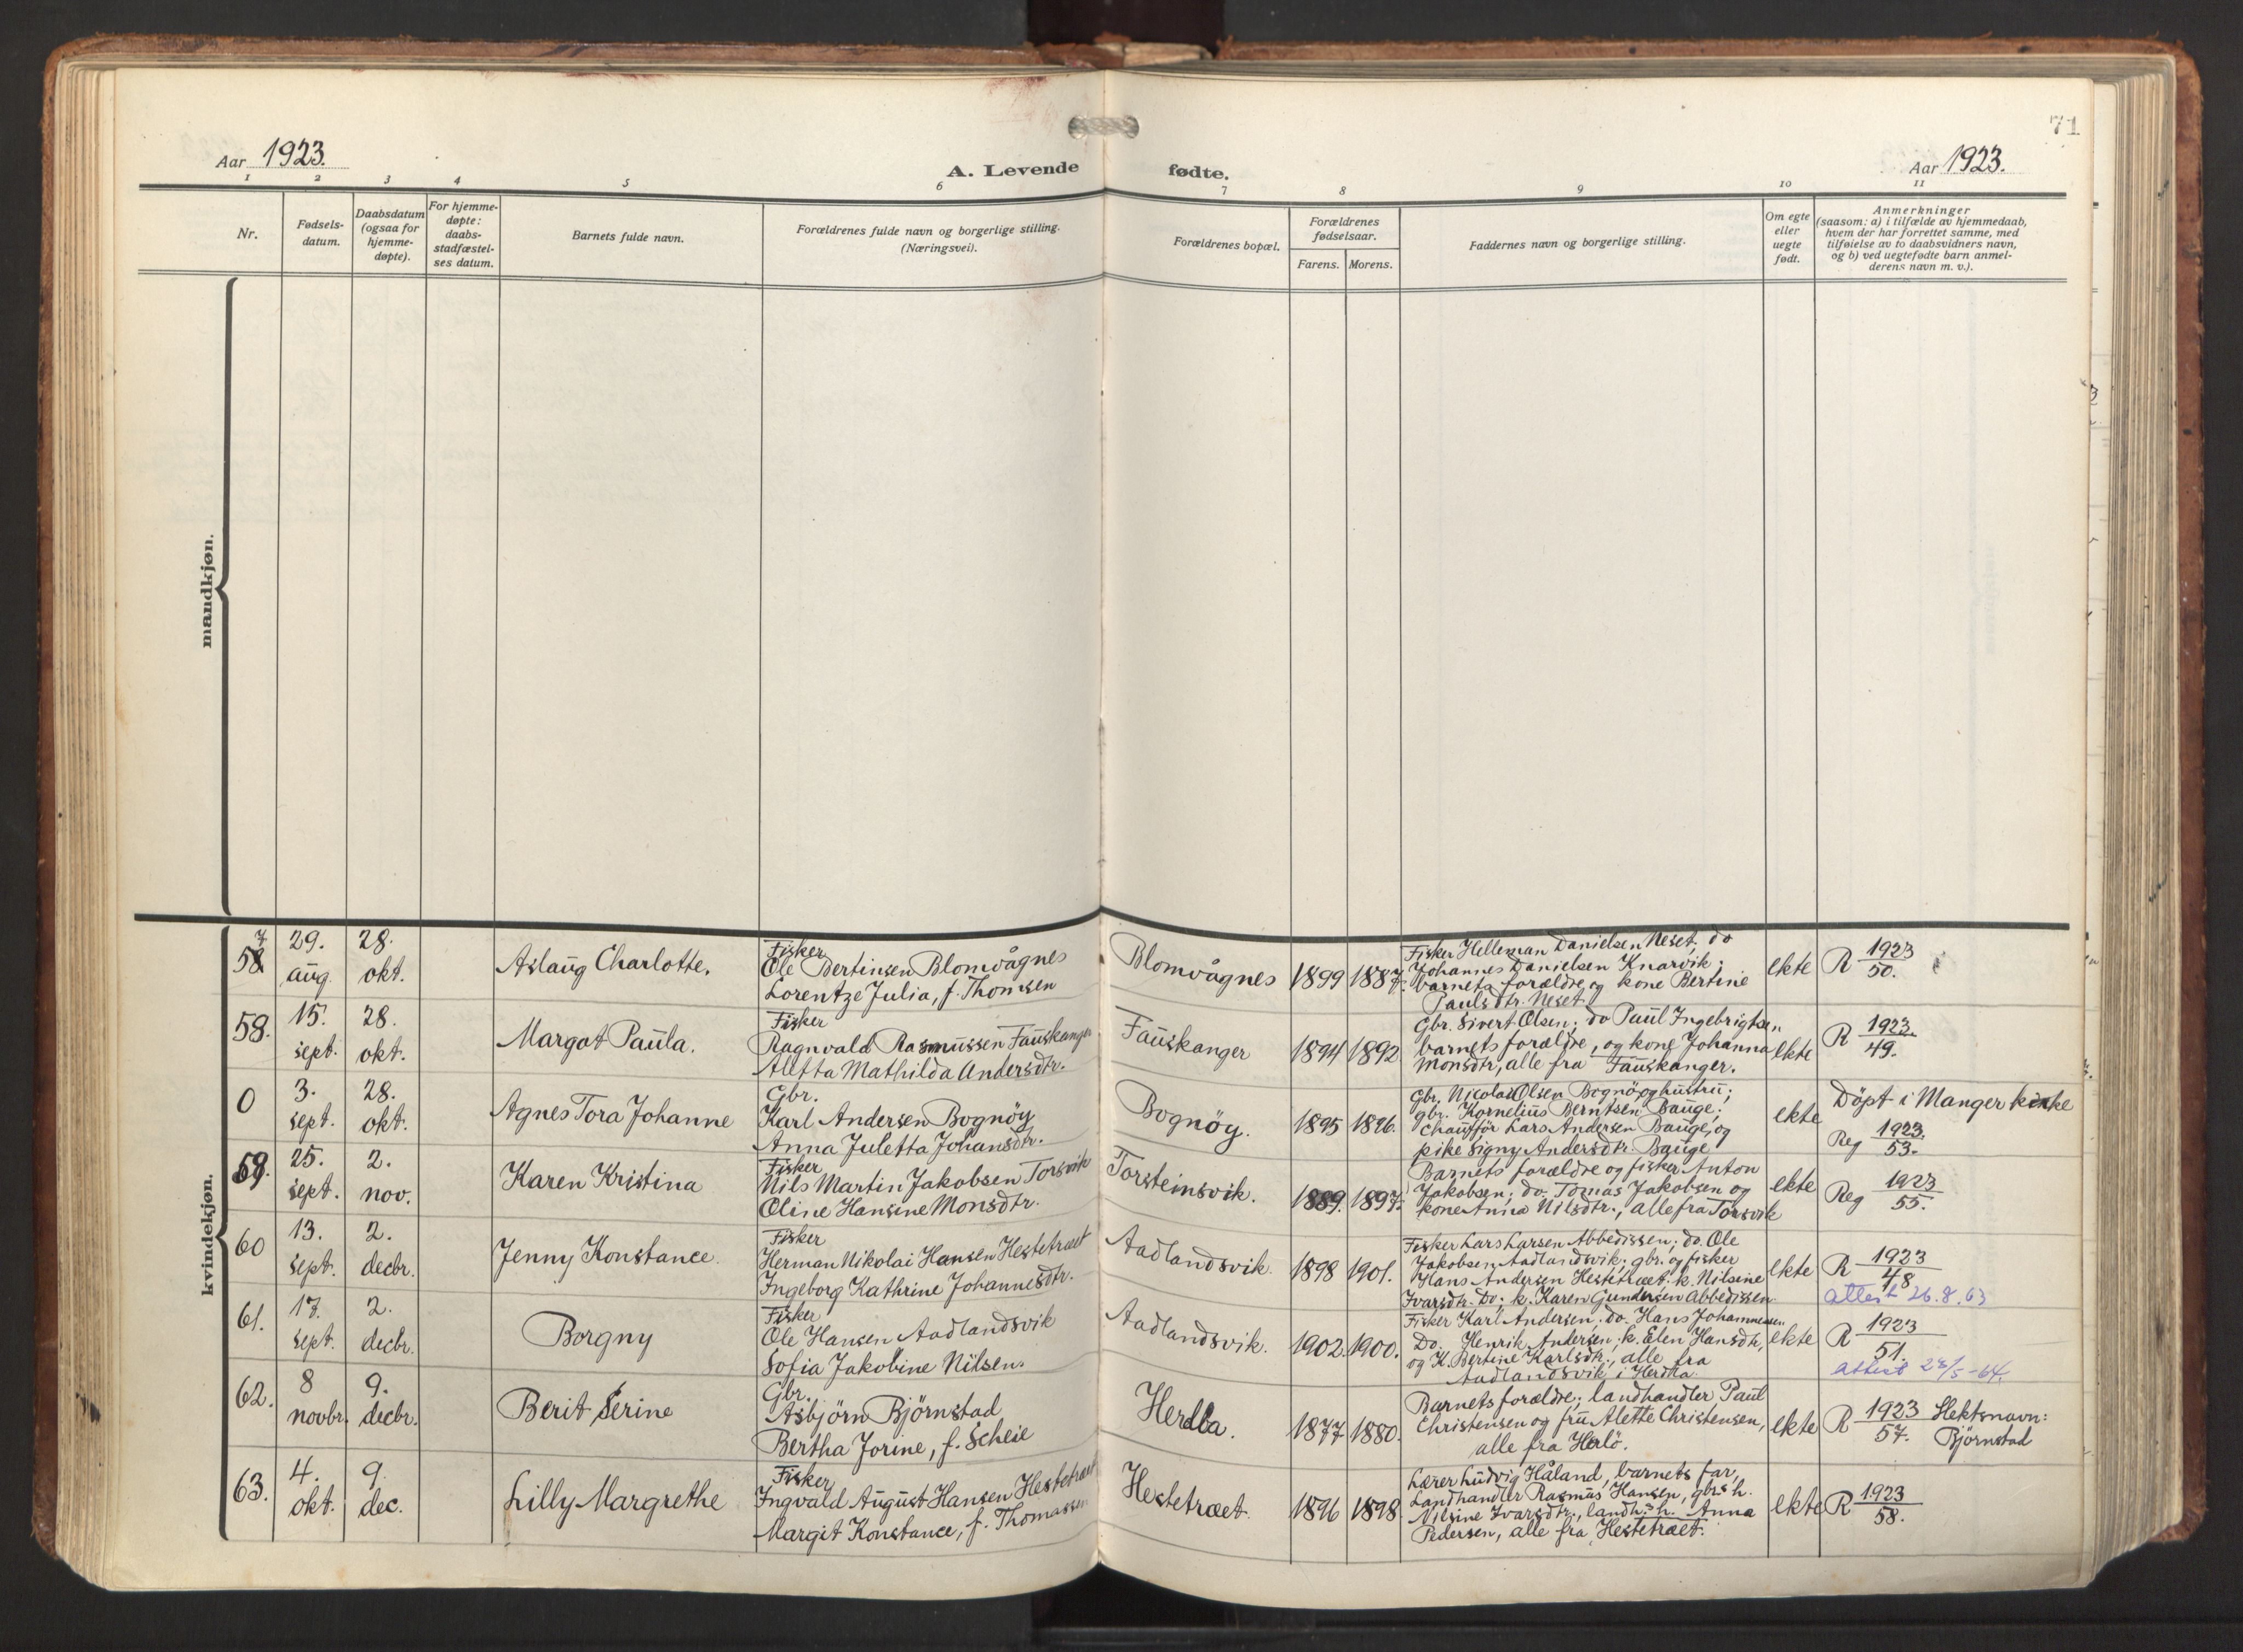 71
Aar 1923.
A. Levende fødte.
Aar 1923.
1 2 3 4 5 6 7 8 9 10 11
Nr.
Fødsels-
datum.
Daabsdatum
(ogsaa for
hjemme-
døpte).
For hjemme-
døpte:
daabs-
stadfæstel-
ses datum.
Barnets fulde navn.
Forældrenes fulde navn og borgerlige stilling.
(Næringsvei).
Forældrenes bopæl.
Forældrenes
fødselsaar.
Farens. Morens.
Faddernes navn og borgerlige stilling.
Om egte
eller
uegte
født.
Anmerkninger
(saasom: a) i tilfælde av hjemmedaab,
hvem der har forrettet samme, med
tilføielse av to daabsvidners navn,
og b) ved uegtefødte barn anmel-
derens navn m. v.).
mandkjøn.
kvindekjøn.
58 7
29.
aug.
28.
okt.
Aslaug Charlotte.
Fisker
Ole Bertinsen Blomvågnes
Lorentze Julia, f. Thomsen
Blomvågnes
1899 1887.
Fisker Helleman Danielsen Neset; do
Johannes Danielsen Knarvik;
barnets forældre og kone Bertine
Paulsdtr. Neset
ekte
R 1923
50.
58.
15.
sept.
28.
okt.
Margot Paula.
Fisker
Ragnvald Rasmussen Fauskanger
Aletta Mathilda Andersdtr.
Fauskanger
1894 1892
Gbr. Sivert Olsen; do Paul Ingebrigtsen
barnets forældre, og kone Johanna
Monsdtr, alle fra Fauskanger.
ekte
R 1923.
49.
0
3.
sept.
28.
okt.
Agnes Tora Johanne
Gbr.
Karl Andersen Bognøy
Anna Juletta Johansdtr.
Bognøy.
1895 1896.
Gbr. Nicolai Olsen Bognö og hustru;
gbr. Kornelius Berntsen Bauge;
Chaufför Lars Andersen Bauge, og
pike Signy Andersdtr. Bauge
ekte
Döpt i Manger kirke
Reg 1923.
53.
59.
25.
sept.
2.
nov.
Karen Kristina
Fisker
Nils Martin Jakobsen Torsvik
Oline Hansine Monsdtr.
Torsteinsvik.
1889. 1897.
Barnets forældre og fisker Anton
Jakobsen; do. Tomas Jakobsen og
kone Anna Nilsdtr., alle fra Torsvik
ekte
Reg 1923
55.
60
13.
sept.
2.
decbr.
Jenny Konstance.
Fisker
Herman Nikolai Hansen Hestetræet
Ingeborg Kathrine Johannesdtr.
Aadlandsvik.
1898 1901.
Fisker Lars Larsen Abbedissen; do. Ole
Jakobsen Aadlandsvik; gbr. og fisker
Hans Andersen Hestetræet; k. Nilsine
Ivarsdtr. Do; k. Karen Gundersen Abbedissen
ekte
R 1923
48
Attest 26.8.63
61.
17.
sept.
2.
decbr.
Borgny
Fisker
Ole Hansen Aadlandsvik
Sofia Jakobine Nilsen.
Aadlandsvik.
1902. 1900.
Fisker Karl Andersen; do. Hans Johannessen
Do. Henrik Andersen; k. Elen Hansdtr,
og K. Bertine Karlsdtr., alle fra
Aadlandsvik i Herdla.
ekte
R 1923
51.
attest 28/5-64.
62.
8
novbr.
9.
decbr.
Berit Serine
Gbr.
Asbjörn Björnstad
Bertha Jorine, f. Scheie
Herdla.
1877 1880.
Barnets forældre; landhandler Paul
Christensen og fru Alette Christensen,
alle fra Herlö.
ekte
R 1923
57.
Slektsnavn:
Björnstad
63.
4.
okt.
9.
dec.
Lilly Margrethe
Fisker
Ingvald August Hansen Hestetræet
Margit Konstance, f. Thomassen
Hestetræet.
1896 1898
Lærer Ludvig Håland, barnets far,
Landhandler Rasmus Hansen, gbrs h.
Nilsine Ivarsdtr., landh.s h. Anna
Pedersen, alle fra Hestetræet.
ekte
R 1923
58.